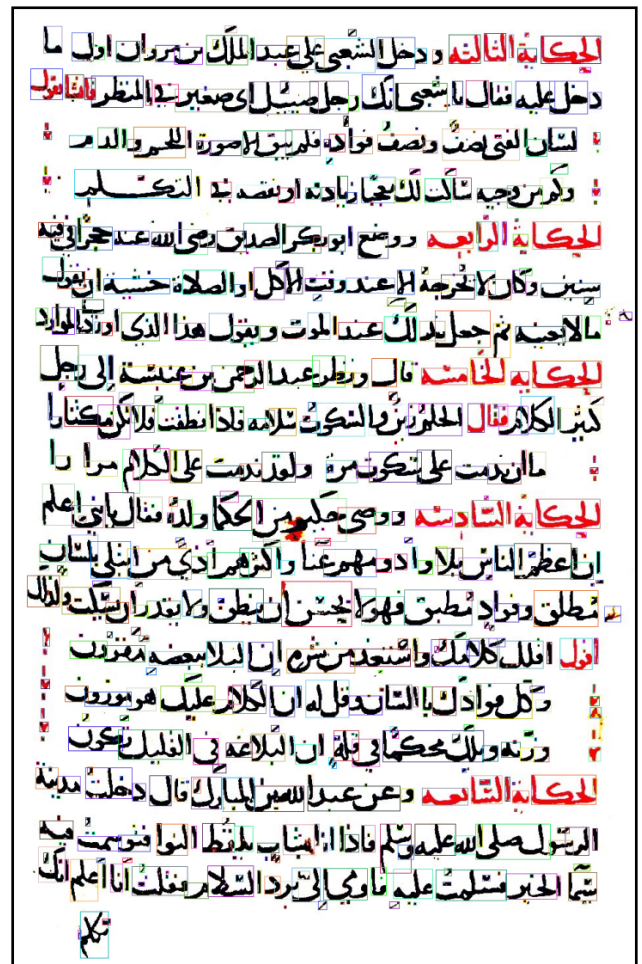 الحكاية الثالثه ودخل الشعبي على عبد الملك بن مروان اول ما
دخل عليه فقال يا شعبي انك رجل ضييل اي صغير في المنظر فانشا يقول
لسان الفتى نصف ونصف فواده فلم يبق الا صورة اللحم والدم
وكم من وجيه ساكت لك معجبا زيادته او نقصه في التكلم
الحكاية الرابعه ووضع ابو بكر الصديق رضي الله عنه حجرا في فيه
سنين وكان لا يخرجه الا عند وقت الاكل او الصلاة خشية ان يقول
ما لا يعنيه ثم جعل بذلك عند الموت ويقول هذا الذي اوردني الموارد
الحكايه الخامسه قال ونظر عبد الرحمن بن عنبسة الى رجل
كثير الكلام فقال الحلم زين والسكوت سلامه فاذا نطقت فلا تكن مكثارا
ما ان ندمت على سكوت مرة ولقد ندمت على الكلام مرارا
الحكاية السادسه ووصى حكيم من الحكما ولده فقال يا بني اعلم
ان اعظم الناس بلا وادومهم عنا واكثرهم اذي من ابتلي بلسان
مطلق وفواد مطبق فهو لا يحسن ان ينطق ولا يقدر ان يسكت ولذلك
اقول اقلل كلامك واستعذ من شره ان البلا ببعضه مقرون
وكل فوادك باللسان وقل له ان الكلام عليك هو موزون
وزنه وليك محكما في قلة ان البلاغه في القليل تكون
الحكاية السابعه وعن عبد الله بن المبارك قال دخلت مدينة
الرسول صلى الله عليه وسلم فاذا انا بشاب يلتقط النوا فتوسمت فيه
سيما الخير فسلمت عليه فاومي الي برد السلام فقلت انا اعلم انك
تتكلم